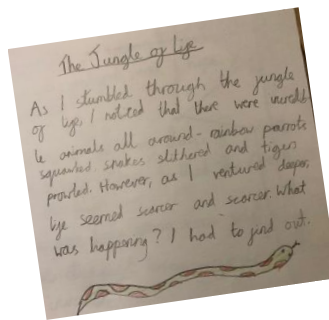 The Jungle of Life
As I stumbled through the jungle
of life, I noticed that there were incredib-
le animals all around - rainbow parrots
squawked, snakes slithered and tigers
prowled. However, as I ventured deeper,
life seemed scarcer and scarcer. What
was happening? I had to find out.